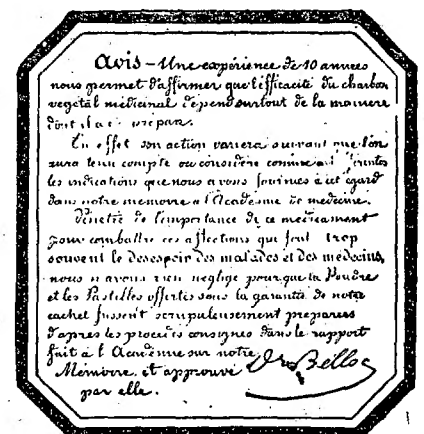 Avis – Une expérience de 10 années
nous permet d'affirmer que l'efficacité du charbon
végétal médicinal dépend surtout de la manière
dont il a été préparé.
En effet son action variera suivant que l'on
aura tenu compte ou considéré comme
les indications que nous avons fournies à cet égard
dans notre mémoire à l'Académie de médecine.
Pénétré de l'importance de ce médicament
pour combattre ces affections qui font trop
souvent le désespoir des malades et des médecins,
nous n'avons rien négligé pour que la Poudre
et les Pastilles offertes sous la garantie de notre
cachet fussent scrupuleusement préparées
d'après les procédés consignés dans le rapport
fait à l'Académie sur notre
Mémoire et approuvé Dr Belloc
par elle.